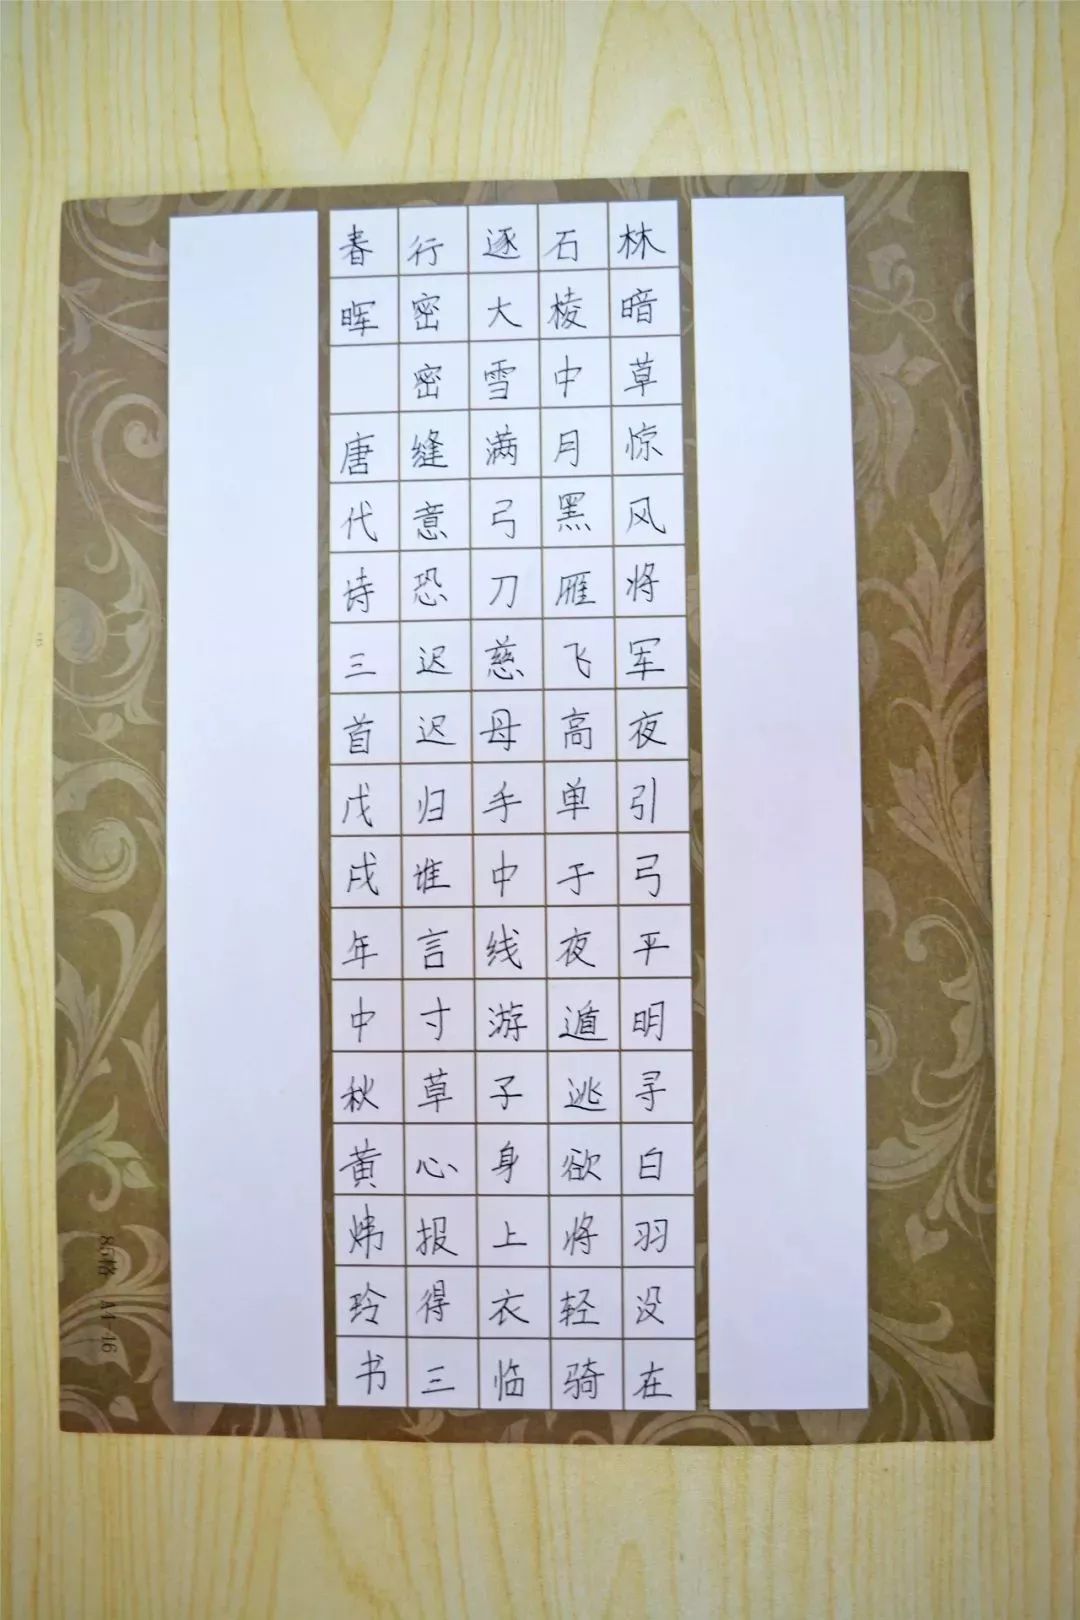 林暗草惊风将军夜引弓平明寻白羽没在
石棱中月黑雁飞高单于夜遁逃欲将轻骑
逐大雪满弓刀慈母手中线游子身上衣临
行密密缝意恐迟迟归谁言寸草心报得三
春晖 唐代诗三首戊戌年中秋黄炜玲书
85格 A4-16